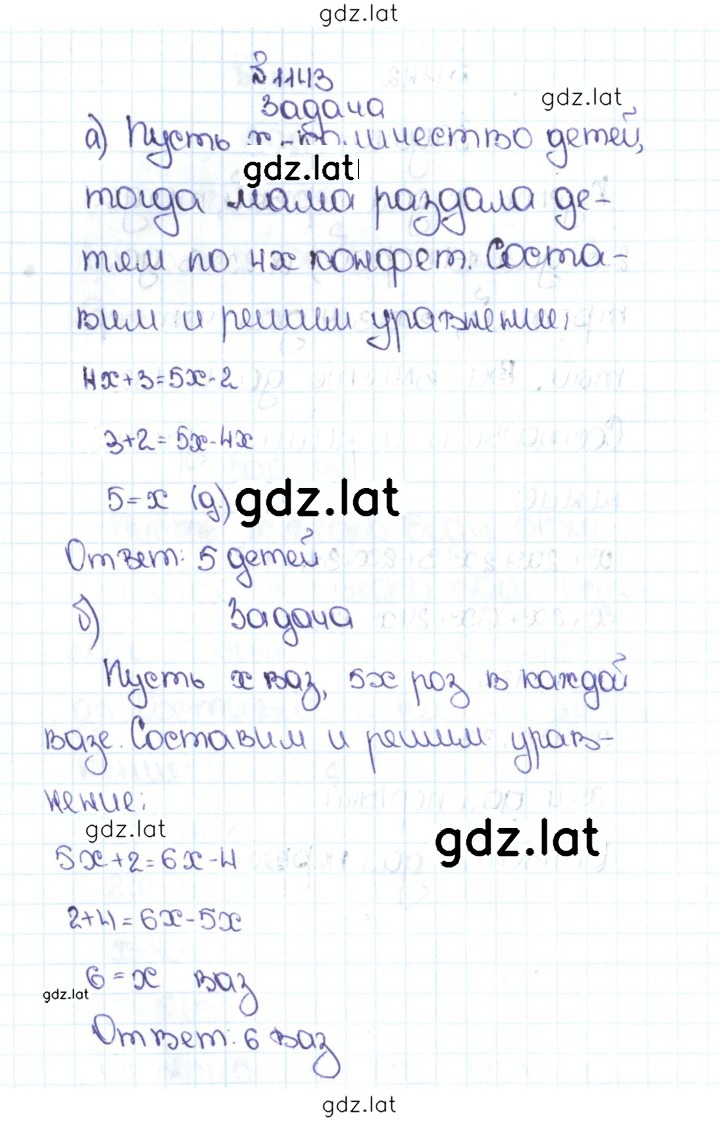 gdz.lat
№1143
Задача
gdz.lat
а) Пусть x - количество детей,
gdz.lat
тогда мама раздала де-
тям по 4x конфет. Соста-
вим и решим уравнение:
4x+3=5x-2
3+2=5x-4x
5=x (д.)
gdz.lat
Ответ: 5 детей
б) Задача
Пусть x ваз, 5x роз в каждой
вазе. Составим и решим урав-
нение:
gdz.lat
gdz.lat
5x+2=6x-4
2+4=6x-5x
6=x ваз
gdz.lat
Ответ: 6 ваз
gdz.lat